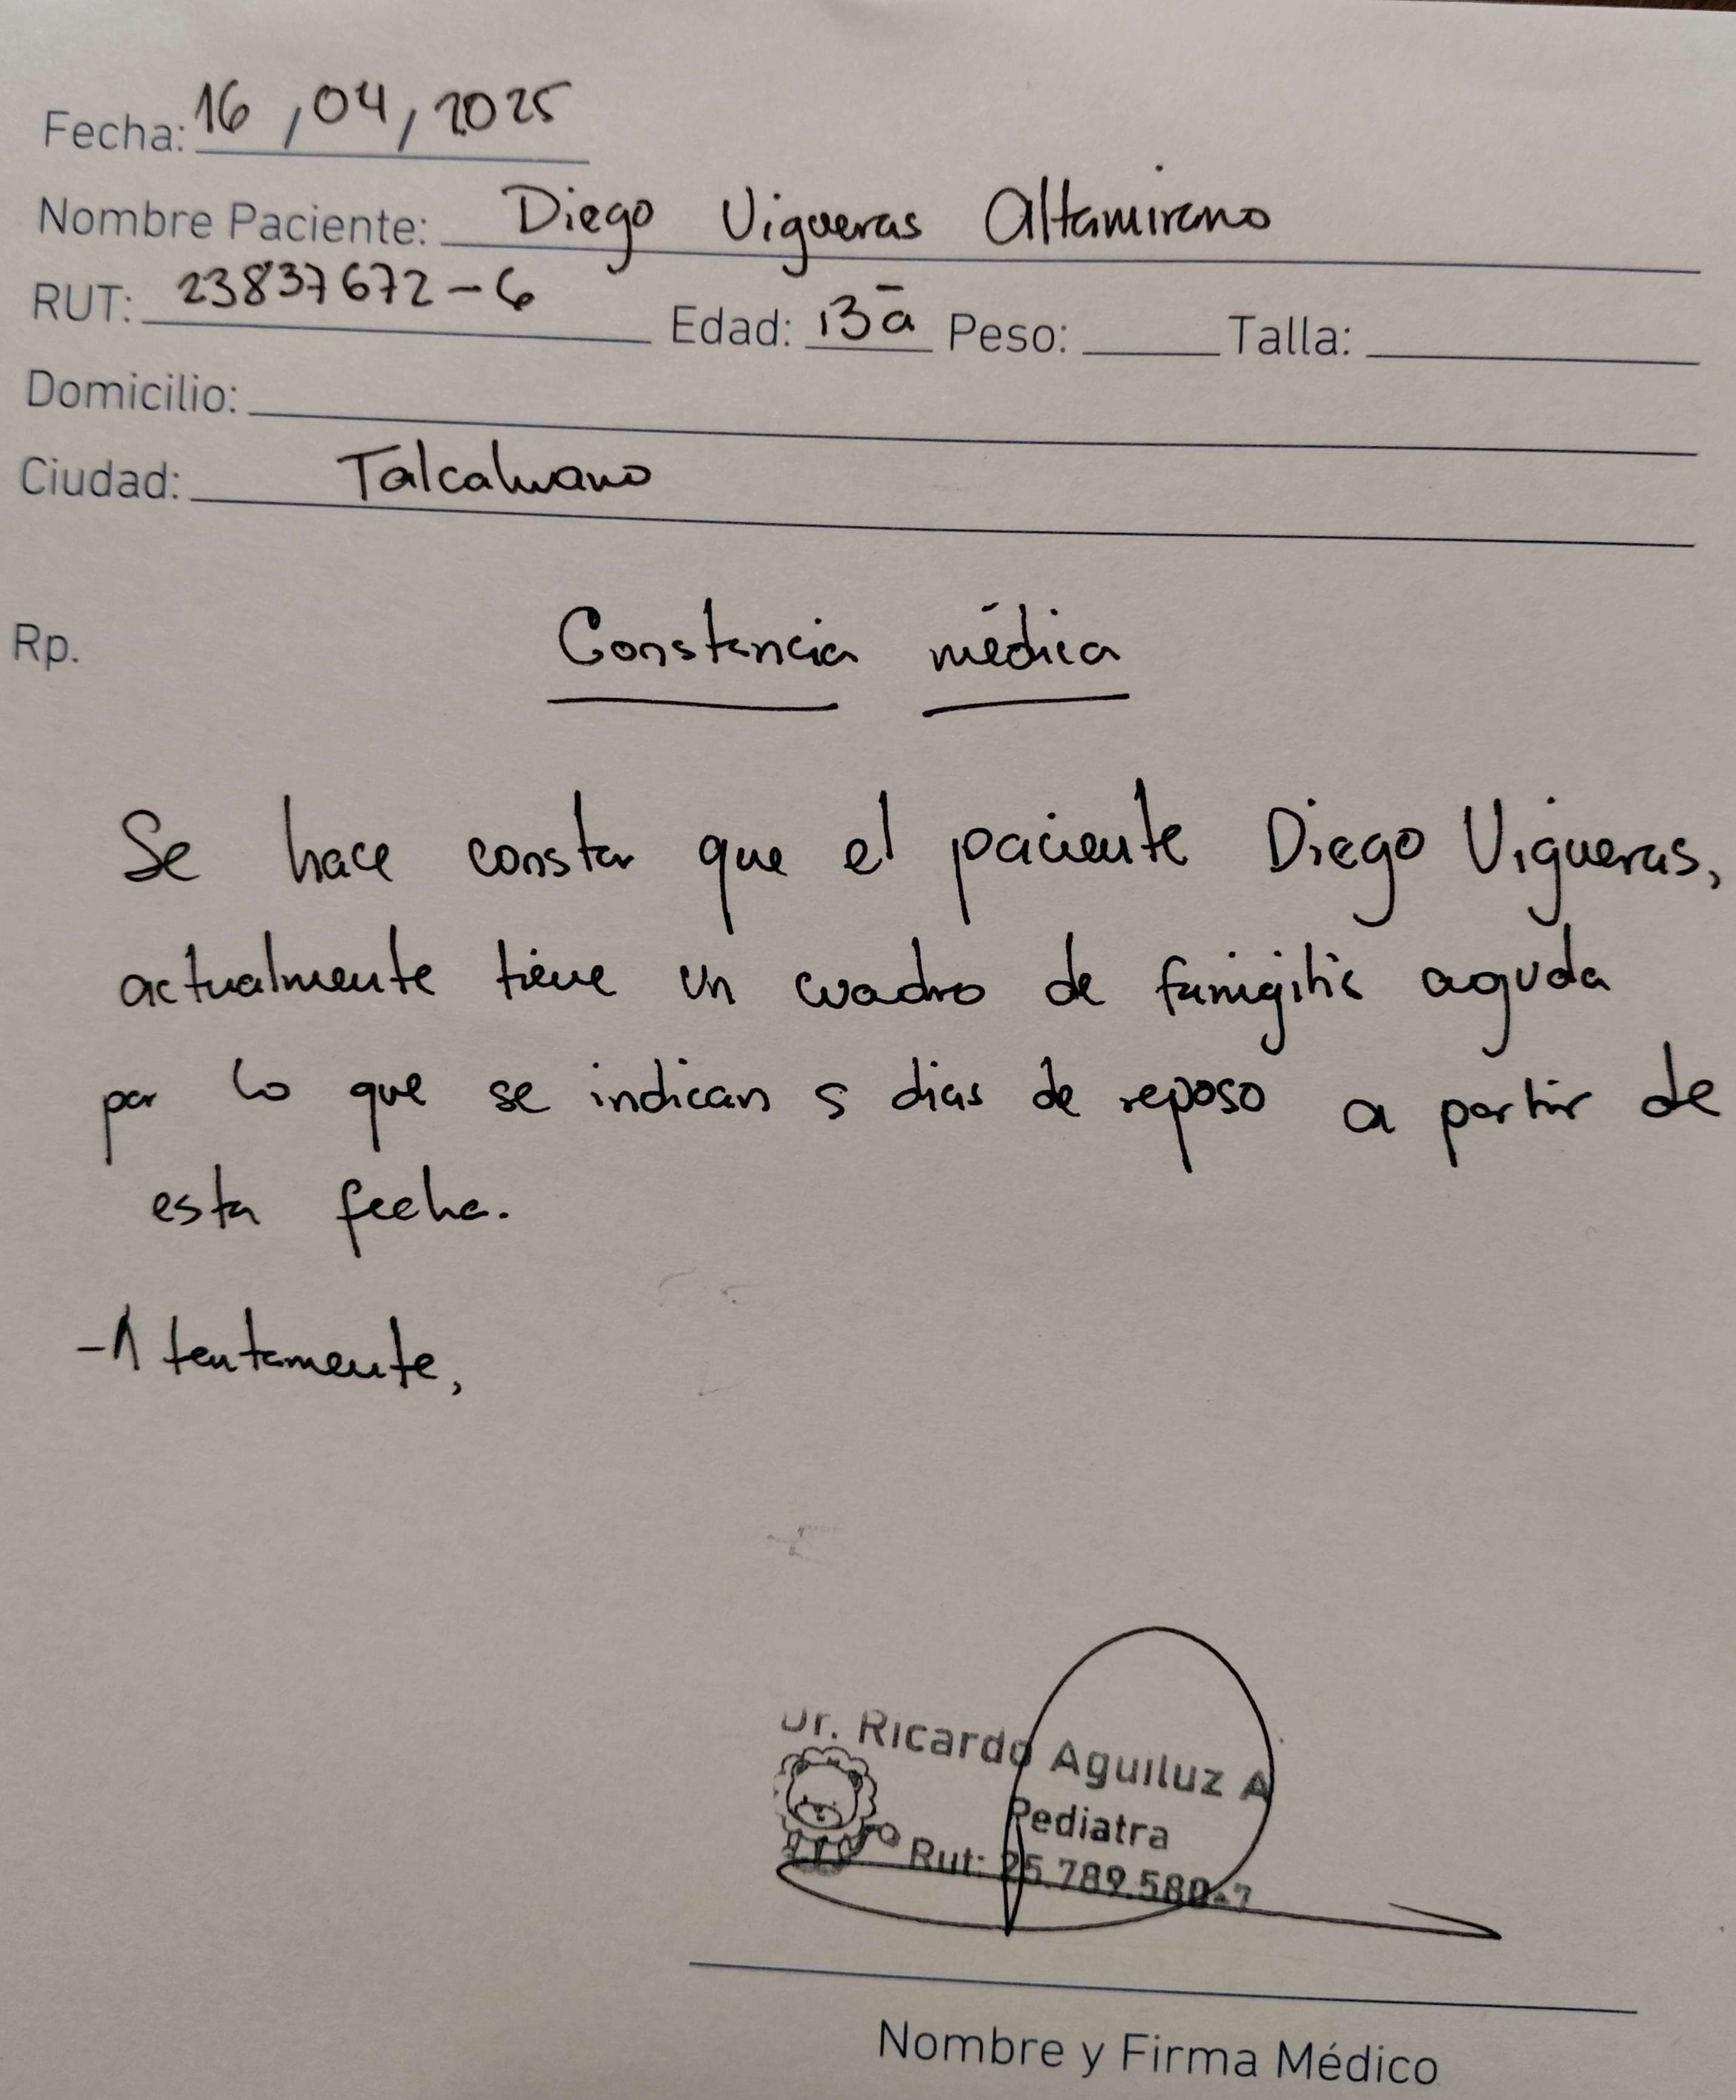 Fecha: 16 / 04 / 2025
Nombre Paciente: Diego Vigueras Altamirano
RUT: 23837672-6 Edad: 13a Peso: Talla:
Domicilio:
Ciudad: Talcahuano
Rp. Constancia médica
Se hace constar que el paciente Diego Vigueras,
actualmente tiene un cuadro de faringitis aguda
por lo que se indican 5 dias de reposo a partir de
esta fecha.
Atentamente,
Dr. Ricardo Aguiluz A
Pediatra
Rut: 25.789.580-7
Nombre y Firma Médico